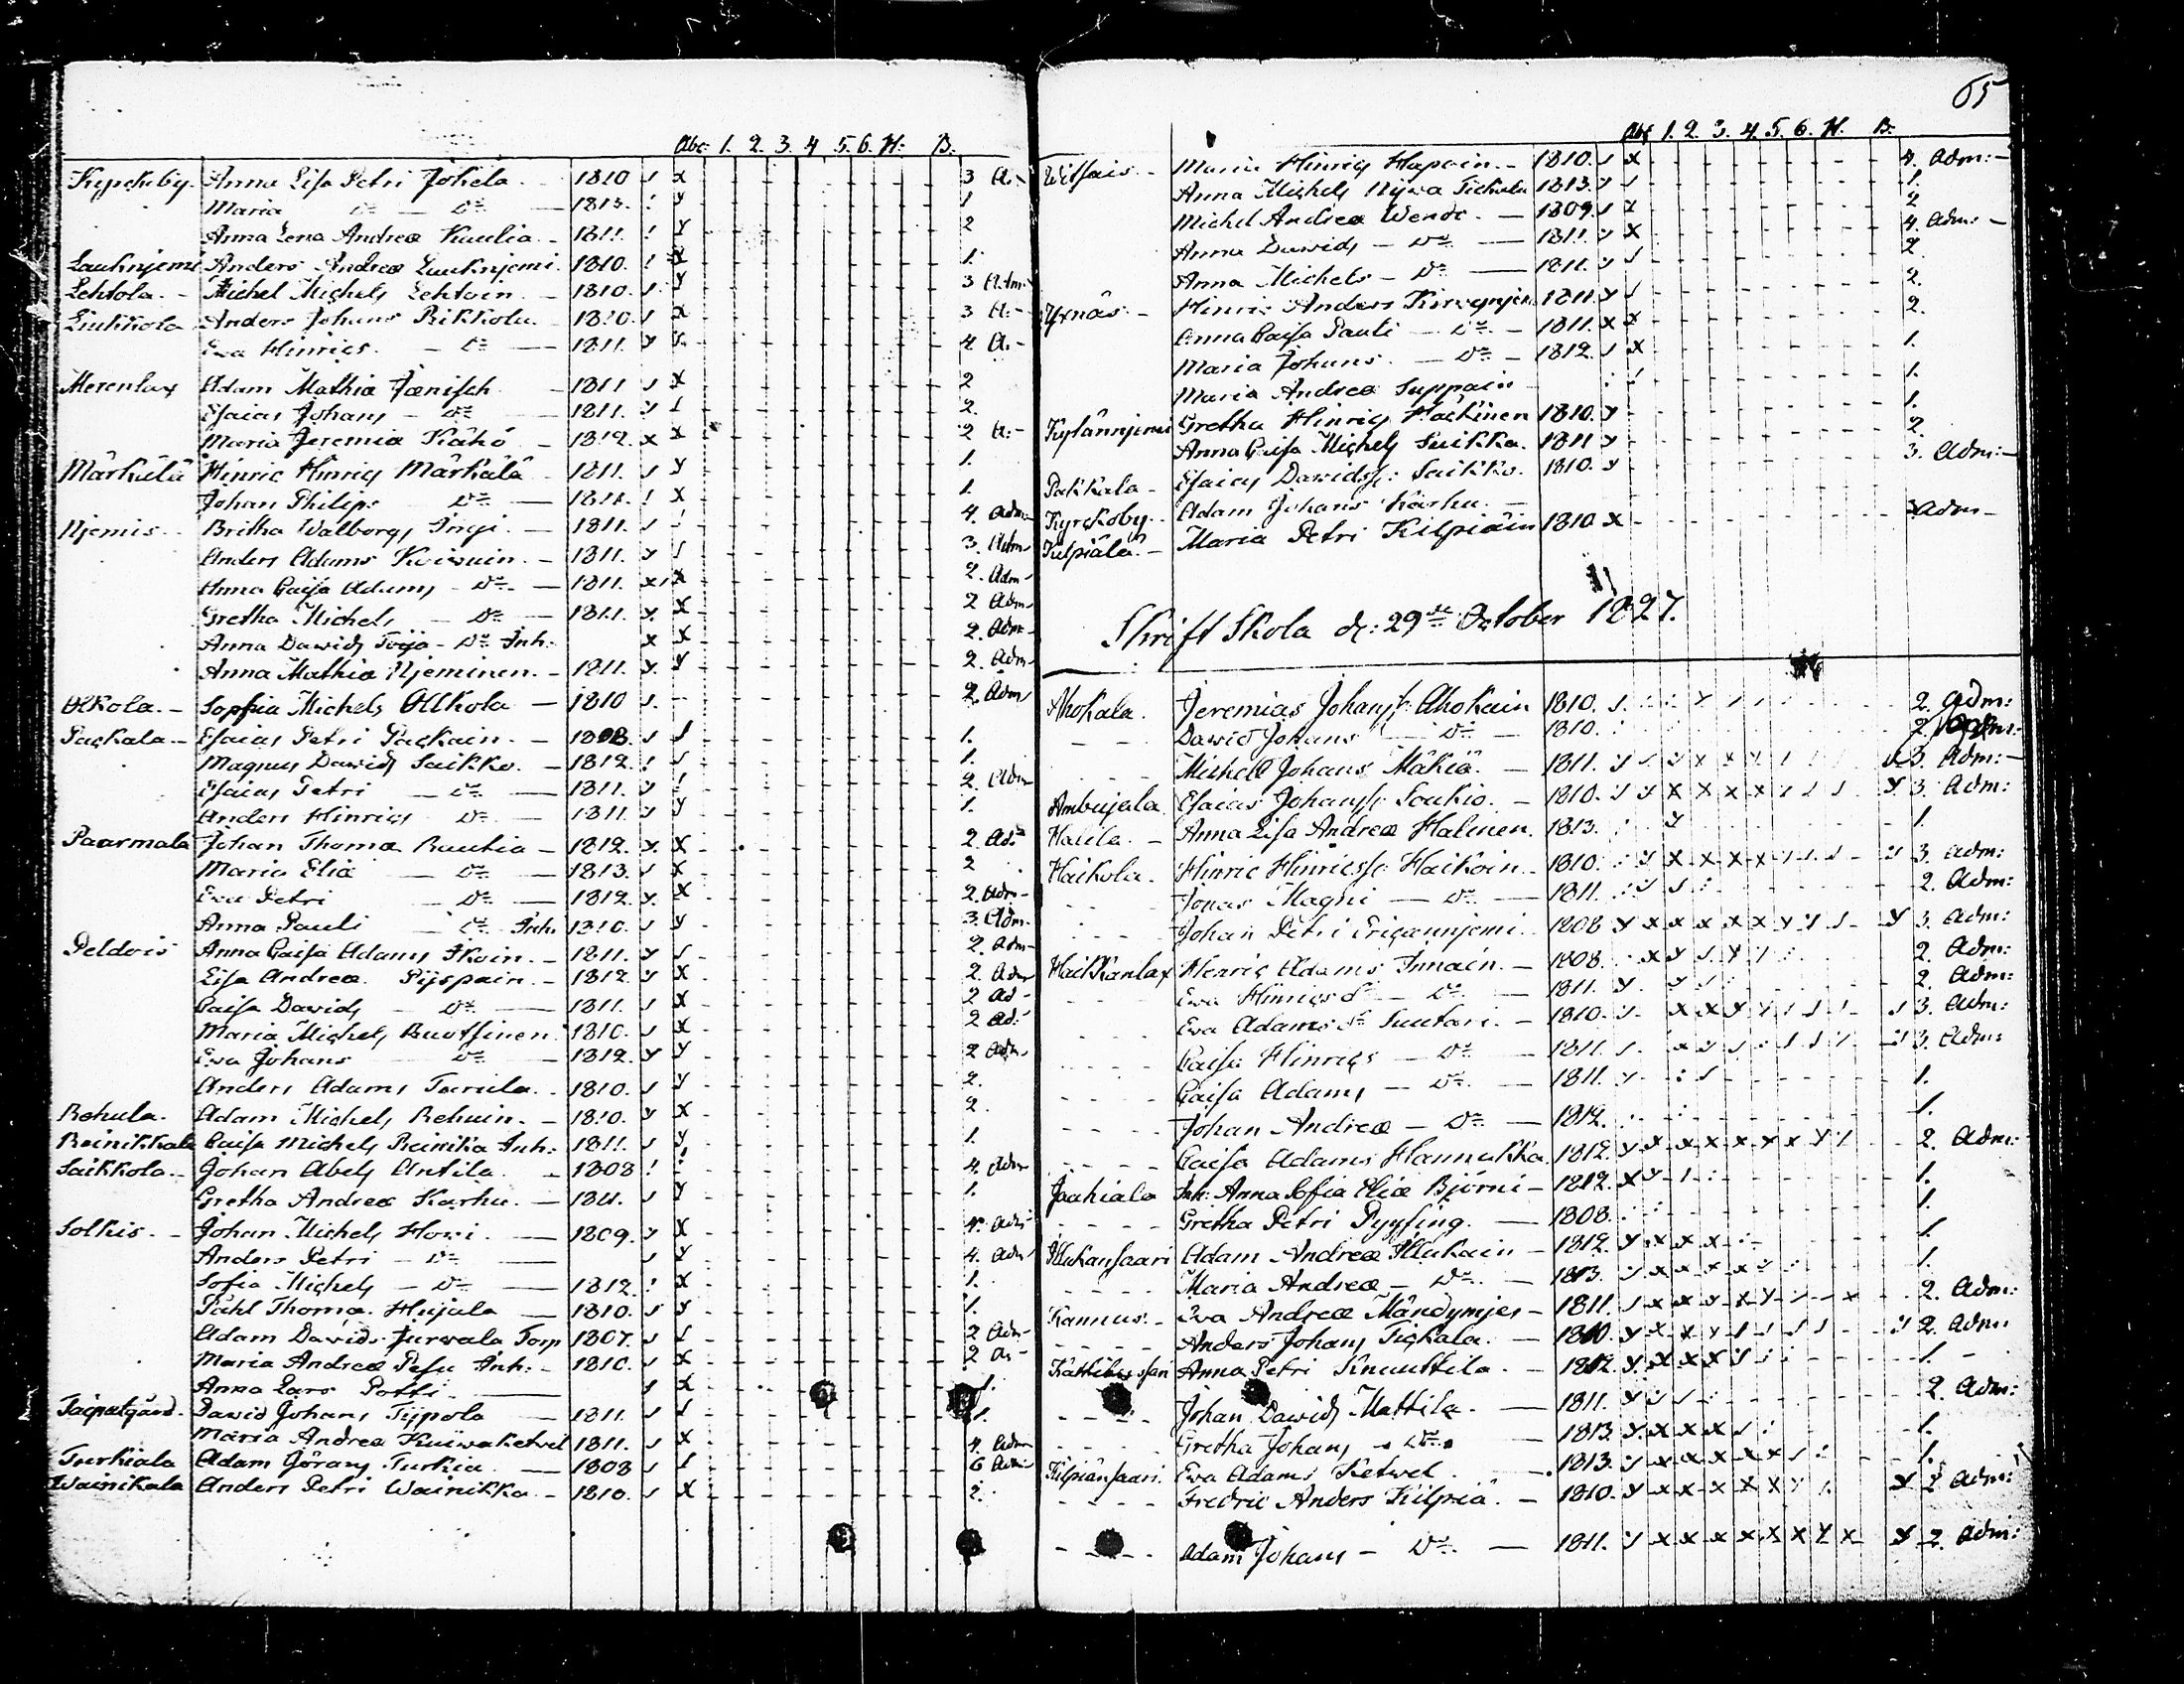 Abc 1. 2. 3. 4 5. 6. H. B.
Anna Lisa Petri Jokela 1810 3 A.
Maria Do Do 1813. 1
Anna Lena Andreæ Kuulia 1811. 2
Lauknjemi Anders Andreæ Lauknjemi 1810. 1.
Lehtola Michel Michels Lehtoin 1810. 3 Adm.
Liukkola Anders Johans Rikkola 1810. 3 A.
Eva Hinrics Do 1811. 4 A.
Merenlax Adam Mathiæ Jænisch 1811 2
Esaias Johans Do 1811. 2.
Maria Jeremiæ Kähö 1812. 2 A.
Märkälä Hinric Hinrics Märkälä 1811. 1.
Johan Philips Do 1811. 1.
Njemis Britha Walborg Inyi 1811. 4. Adm:
Anders Adams Koiwuin 1811. 3. Adm
Anna Caisa Adams Do 1811. 2. Adm
Gretha Michels Do 1811. 2 Adm
Anna Davids Do Inh: 2. Adm
Anna Mathiæ Njeminen 1811. 2. Adm
Ollkola Sophia Michels Ollkola 1810 2. Adm
Packala Esaias Petri Packain 1808. 1.
Magnus Davids Saikko 1812. 1.
Esaias Petri Do 1811. 2. Adm
Anders Hinrics Do 1811. 1.
Paarmala Johan Thomæ Rautia 1812. 2 Ad:
Maria Eliæ Do 1813. 2
Eva Petri Do 1812. 2. Adm
Anna Pauli Do Inh. 1810. 3. Adm
Peldois Anna Caisa Adams Ikoin 1811. 2. Adm
Lisa Andreæ Pijspain 1812 2. Adm
Caisa Davids Do 1811. 2 Ad
Maria Michels Ruotsinen 1810. 2 Ad:
Eva Johans Do 1812. 2 Adm
Anders Adams Tarula 1810. 2.
Rehula Adam Michels Rehuin 1810. 2.
Reinikkala Caisa Michels Reinika Inh: 1811. 1.
Saikkola Johan Abels Antila 1808 4. Adm
Gretha Andreæ Karhu 1811. 1.
Solkis Johan Michels Howi 1809. 4. Adm
Anders Petri Do 4. Adm
Sofia Michels Do 1812. 1.
Påhl Thomæ Hujala 1810. 1.
Adam Davids Jurwala Torp 1807. 2 Adm
Maria Andreæ Pesu Inh: 1810. 2 A:
Anna Lars Potti 1.
Taipalgård David Johans Tijpola 1811. 1.
Maria Andreæ Kuiwaketwel 1811. 4. Adm
Turkiala Adam Görans Turkia 1808 6 Adm
Wainikala Anders Petri Wainikka 1810. 2.
65
Abc 1. 2. 3. 4. 5. 6. H. B.
Witsais Maria Hinrics Hapoin 1810. 4. Adm:
Anna Michels Tickala 1813. 1.
Michel Andreæ Wendo 1809. 2
Anna Davids Do 1811. 4. Adm:
Anna Michels Do 1811. 2.
Yxnäs Hinric Anders 1811. 2.
Anna Caisa Pauli Do 1811. 2.
Maria Johans Do 1812. 1.
Maria Andreæ Suppain 1.
Kylännjemi Gretha Hinrics Häckinen 1810. 1.
Anna Caisa Michels Suikka 1811 2.
Pakkala Esaias Davidss: Saikko 1810. 3. Adm:
Kyrckoby Adam Johans Karhu
Kilpiälä Maria Petri Kilpiäin 1810 Adm
Skriftskola d: 29de October 1827.
Ahokala Jeremias Johanss: Ahokain 1810. 2. Adm:
David Johans Do 1810. 2.
Michell Johans Mäkiä 1811. 3. Adm:
Ambujala Esaias Johanss: Soukio 1810. 3. Adm:
Halila Anna Lisa Andreæ Halinen 1813. 1.
Haikola Hinric Hinricss: Haikoin 1810. 3. Adm:
Jonas Magni Do 1811. 2. Adm:
Johan Petri Ericannjemi 1808 3. Adm:
Haikkanlax Henric Adams Innain 1808. 2. Adm:
Eva Hinrics Dr Do 1811. 2. Adm:
Eva Adams Dr Suutari 1810. 3. Adm:
Caisa Hinrics Do 1811. 3. Adm:
Caisa Adams Do 1811. 1.
Johan Andreæ Do 1812. 1.
Caisa Adams Hannukka 1812. 2. Adm:
Jaahiala Inh: Anna Sofia Eliæ Björni 1812. 1.
Gretha Petri Pyysing 1808. 1.
Illukansaari Adam Andreæ Illukain 1812. 1.
Maria Andreæ Do 1813. 1.
Kannus Eva Andreæ Mändynjes 1811. 2. Adm:
Anders Johans Tickala 1810. 2. Adm:
Anna Petri Knuuttila 1812. 1.
Johan Davids Mattila 1811. 2. Adm:
Gretha Johans Do 1813 1.
Kilpiänsaari Eva Adams Ketwel 1813. 1.
Fredric Anders Kilpiä 1810. 2 Adm:
Adam Johans Do 1811. 2. Adm: